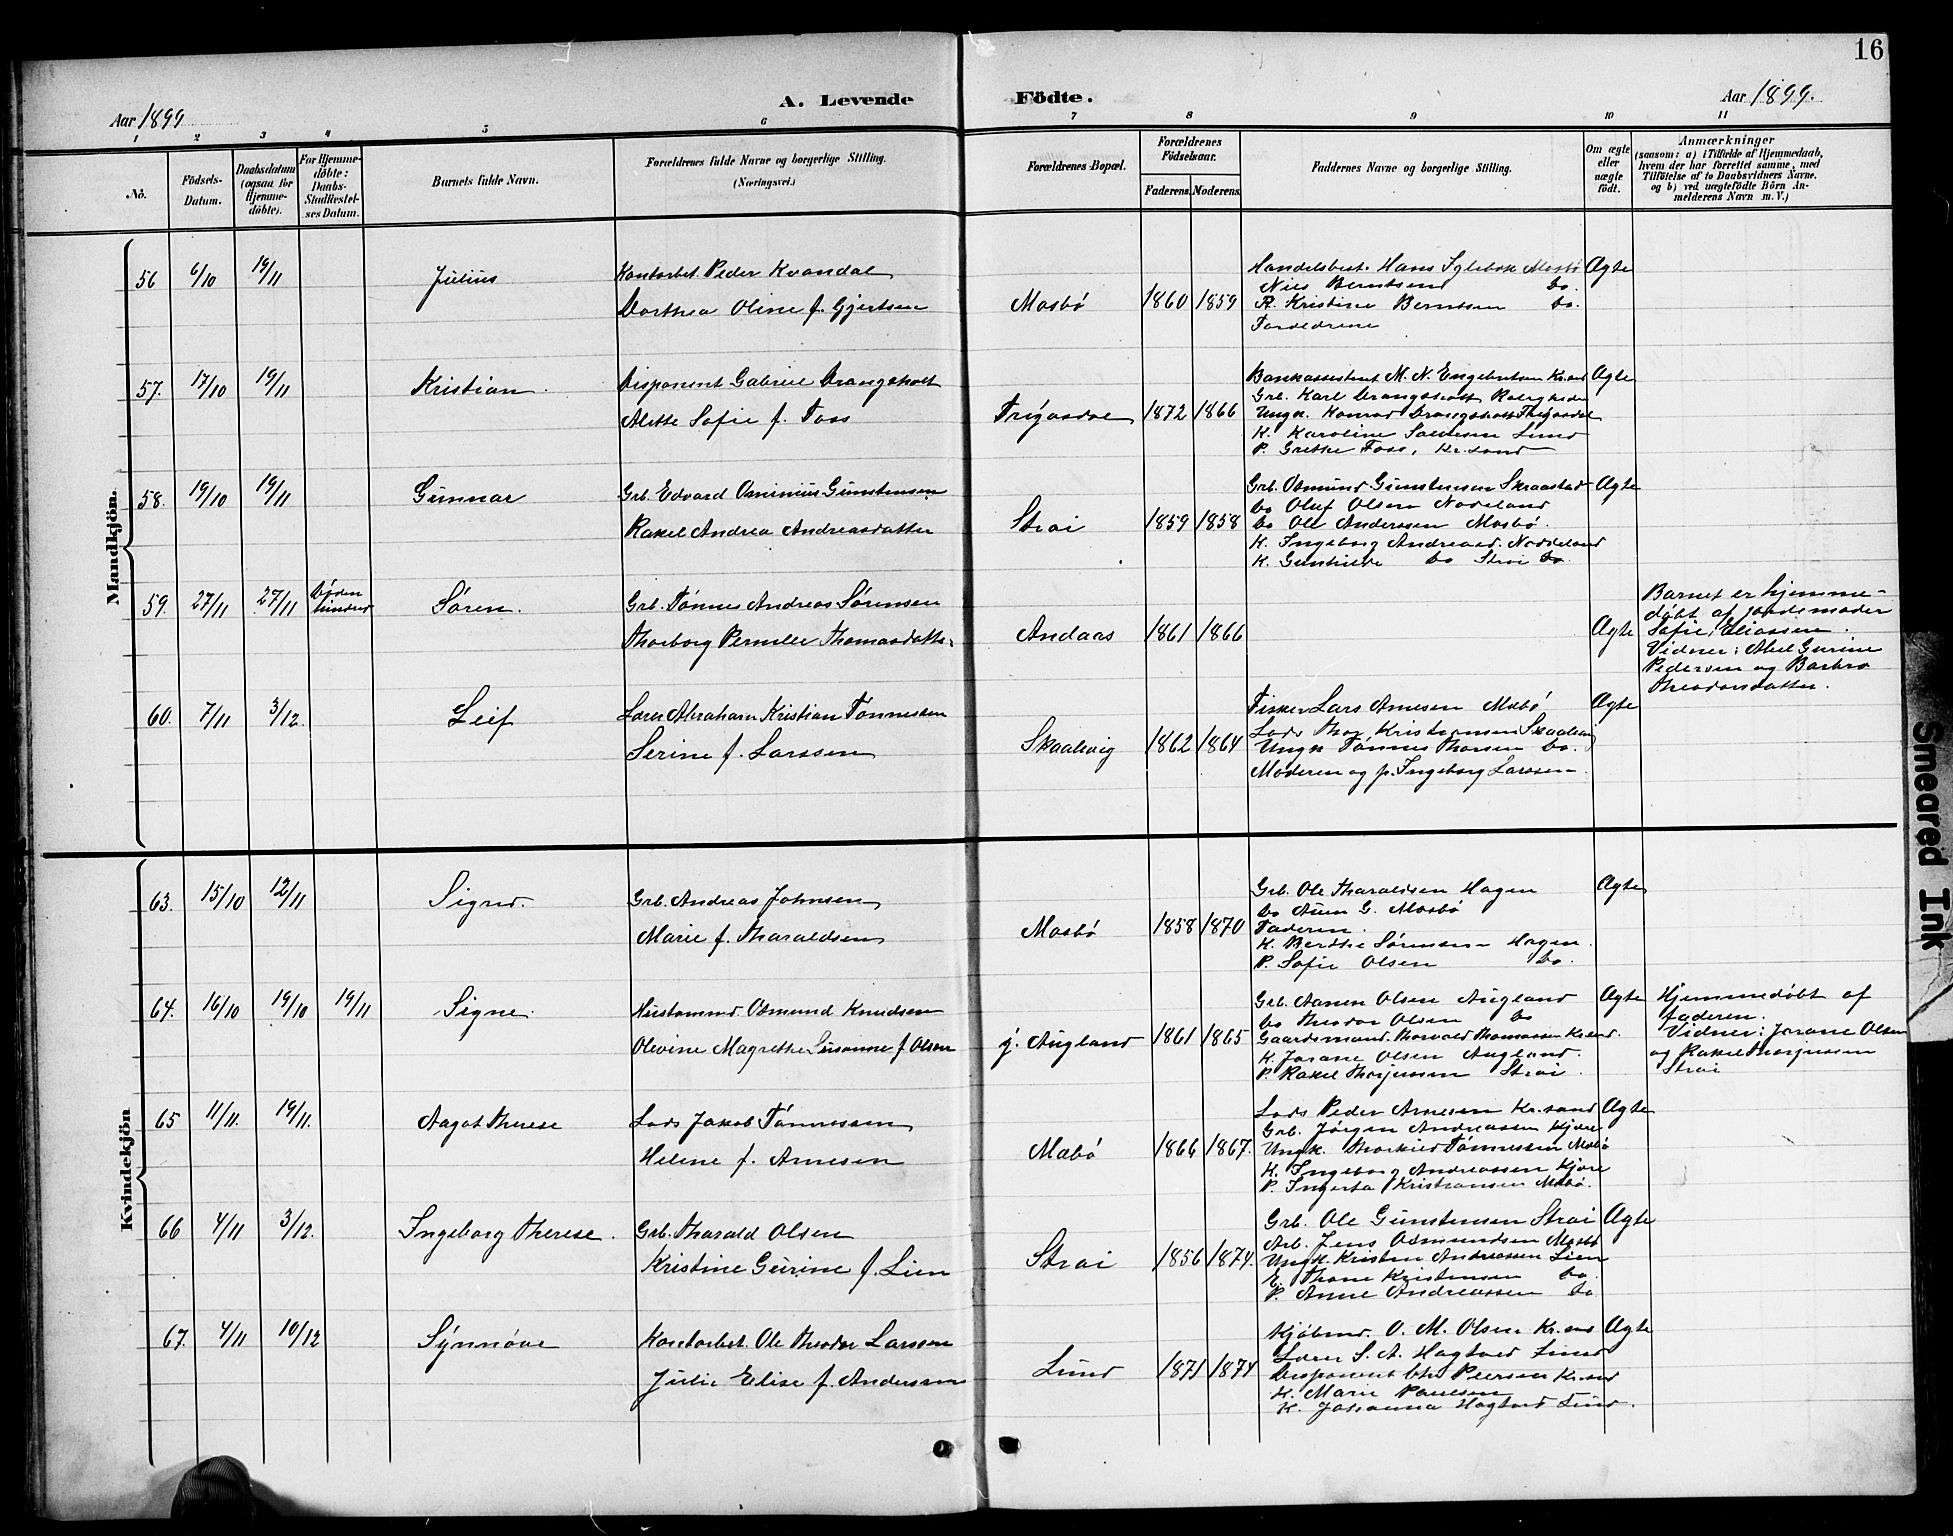 16
Aar 1899
A. Levende
Födte.
Aar 1899.
1 2 3 4 5 6 7 8 9 10 11
No.
Födsels-
Datum.
Daabsdatum
(ogsaa for
Hjemme-
døbte).
For Hjemme-
döbte:
Daabs-
Stadfæstel-
ses Datum.
Barnets fulde Navn.
Forældrenes fulde Navne og borgerlige Stilling.
(Næringsvei.)
Forældrenes Bopæl.
Forældrenes
Födselsaar.
Faderens. Moderens.
Faddernes Navne og borgerlige Stilling.
Om ægte
eller
uægte
födt.
Anmærkninger
(saasom: a) i Tilfælde af Hjemmedaab,
hvem der har forrettet samme, med
Tilföielse af to Daabsvidners Navne.
og b) ved uægtefödte Börn An-
melderens Navn m. V.)
Mandkjön.
56 6/10 19/11 Julius
Kontorbet. Peder Kvandal
Dorthea Oline f. Gjertsen
Mosbø 1860 1859
Handelsbest. Hans Mosbø
Nils Berntsen do.
Kristine Berntsen do.
Forældrene
Ægte
57. 17/10 19/11 Kristian.
Disponent Gabriel Drangsholt
Alette Sofie f. Foss
Trygsdal 1872 1866
Bankassistent M. N. Engebretsen Kr.sand
Grb. Karl Drangsholt
Ungk. Konrad Drangsholt
K. Karoline Salvesen Lund
P. Grethe Foss, Kr.sand
Ægte
58. 19/10 19/11 Gunnar
Grb. Edvard Gunstensen
Rakel Andrea Andreasdatter
Strai 1859 1858
Grb. Osmund Gunstensen Skraastad
do Oluf Olsen Nodeland
do Ole Anderssen Mosbø.
K. Ingeborg Andreasd. Noddeland
K. Gunhilde do Strai do.
Ægte
59. 27/11 27/11 Døden
hindred
Søren.
Grb. Tønnes Andreas Sørensen
Thorborg Pernille Thomasdatter
Andaas 1861 1866
Ægte
Barnet er hjemme-
døbt af jordemoder
Sofie Eliassen.
Vidner: Abel Gurine
Pedersen og Barbro
Theodorsdatter.
60. 7/11 3/12. Leif
Lærer Abraham Kristian Tønnessen
Serine f. Larssen
Skaalevig 1862 1864
Fisker Lars Arnesen Mæbø
Lods Thor Kristensen Skaalevig
Ungk Tønnes Thorsen do.
Moderen og p. Ingeborg Larssen
Ægte
Kvindekjön
63. 15/10 12/11 Signe.
Grb. Andreas Johnsen
Marie f. Tharaldsen
Mosbø 1858 1870
Grb. Ole Tharaldsen Hagen
do G. Mosbø
Faderen.
K. Berthe Sørensen Hagen.
P. Sofie Olsen do.
Ægte
64. 16/10 19/10 19/11 Signe.
Hustømmd. Osmund Knudsen
Olevine Magrethe Susanne f. Olsen
y. Augland 1861 1865
Grb. Aanen Olsen Augland
do Theodor Olsen do
Gaardsmand. Thorvald Thomassen Kr.sand.
K. Jorane Olsen Augland.
P. Rakel Thorjussen Strai.
Ægte
Hjemmedøbt af
faderen.
Vidner: Jorane Olsen
og Rakel Thorjussen
Strai
65 11/11. 19/11. Aagot Therese
Lods Jakob Tønnessen
Helene f. Arnesen
Mæbø 1866 1867.
Lods Peder Arnesen Kr.sand
Grb. Jørgen Andreassen Kjære
Ungk. Thorkild Tønnessen Mæbø
K. Ingeborg Andreassen Kjære
P. Ingerta Kristiansen Mæbø.
Ægte
66 4/11 3/12. Ingeborg Therese.
Grb. Tharald Olsen
Kristine Gurine f. Lien
Strai 1856 1874.
Grb. Ole Gunstensen Strai
Arb. Jens Osmundsen Mosbø
Ungk. Kristen Andreassen Lien
E. Thone Kristensen do.
P. Anne Andreassen do
Ægte
67. 4/11 10/12 Synnøve
Kontorbet. Ole Theodor Larssen
Julie Elise f. Anderssen
Lund 1871 1874
Kjøbmd. O. M. Olsen Kr.sand
Lærer S. A. Hagtvedt Lund
Disponent Chr. Peersen Kr.sand
K. Marie Paulsen
K. Johanna Hagtvedt Lund.
Ægte
Smeared Ink